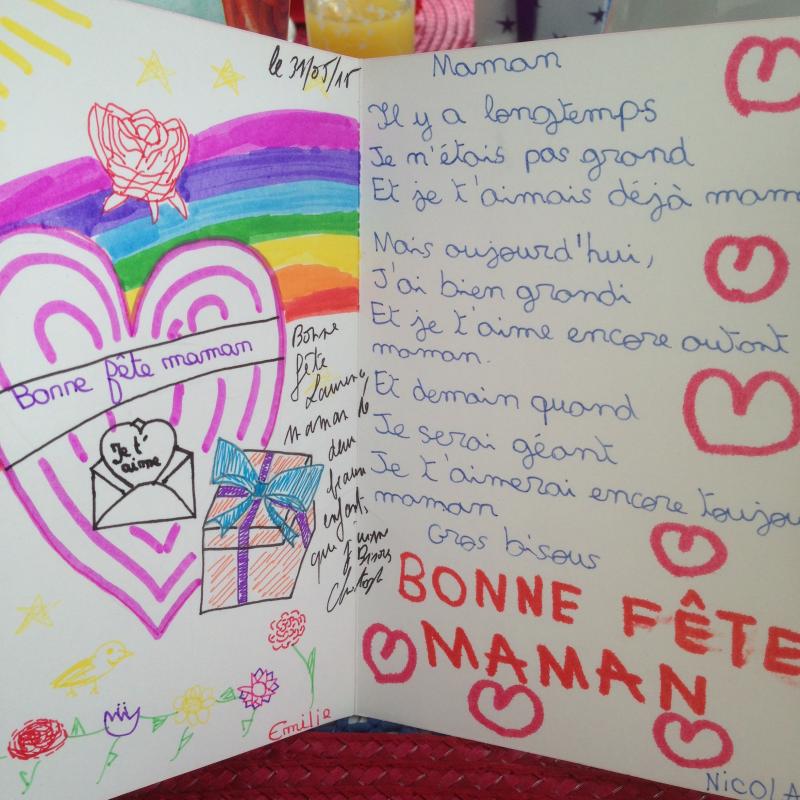 le 31/05/15
Bonne fête maman
Je t'
aime
Bonne
fête
maman de
deux
beaux
enfants
que j'aime
Bisous
Emilie
Maman
Il y a longtemps
Je n'étais pas grand
Et je t'aimais déjà mam
Mais aujourd'hui,
J'ai bien grandi
Et je t'aime encore autant
maman.
Et demain quand
Je serai géant
Je t'aimerai encore toujou
maman
Gros bisous
BONNE FÊTE
MAMAN
NICOLA